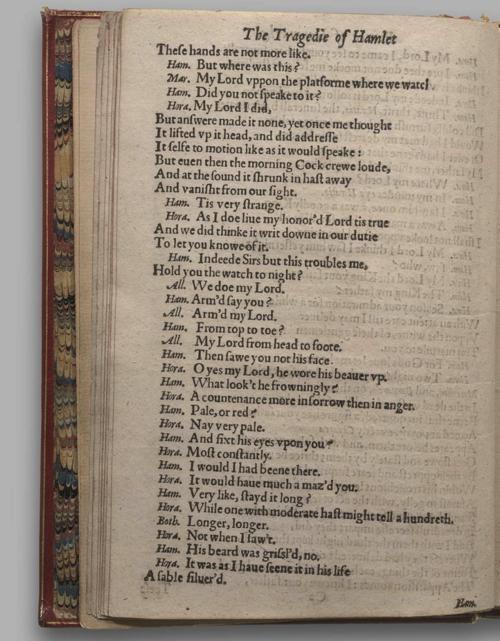 The Tragedie of Hamlet
These hands are not more like.
Ham. But where was this?
Mar. My Lord vppon the platforme where we watch
Ham. Did you not ſpeake to it?
Hora. My Lord I did,
But anſwere made it none, yet once me thought
It lifted vp it head, and did addreſſe
It ſelfe to motion like as it would ſpeake:
But euen then the morning Cock crewe loude,
And at the ſound it ſhrunk in haſt away
And vaniſht from our ſight.
Ham. Tis very ſtrange.
Hora. As I doe liue my honor'd Lord tis true
And we did thinke it writ downe in our dutie
To let you knowe of it.
Ham. Indeede Sirs but this troubles me,
Hold you the watch to night?
All. We doe my Lord.
Ham. Arm'd ſay you?
All. Arm'd my Lord.
Ham. From top to toe?
All. My Lord from head to foote.
Ham. Then ſawe you not his face.
Hora. O yes my Lord, he wore his beauer vp.
Ham. What look't he frowningly?
Hora. A countenance more in ſorrow then in anger.
Ham. Pale, or red?
Hora. Nay very pale.
Ham. And fixt his eyes vpon you?
Hora. Moſt conſtantly.
Ham. I would I had beene there.
Hora. It would haue much a maz'd you.
Ham. Very like, ſtayd it long?
Hora. While one with moderate haſt might tell a hundreth.
Both. Longer, longer.
Hora. Not when I ſaw't.
Ham. His beard was griſſl'd, no.
Hora. It was as I haue ſeene it in his life
A ſable ſiluer'd.
Ham.